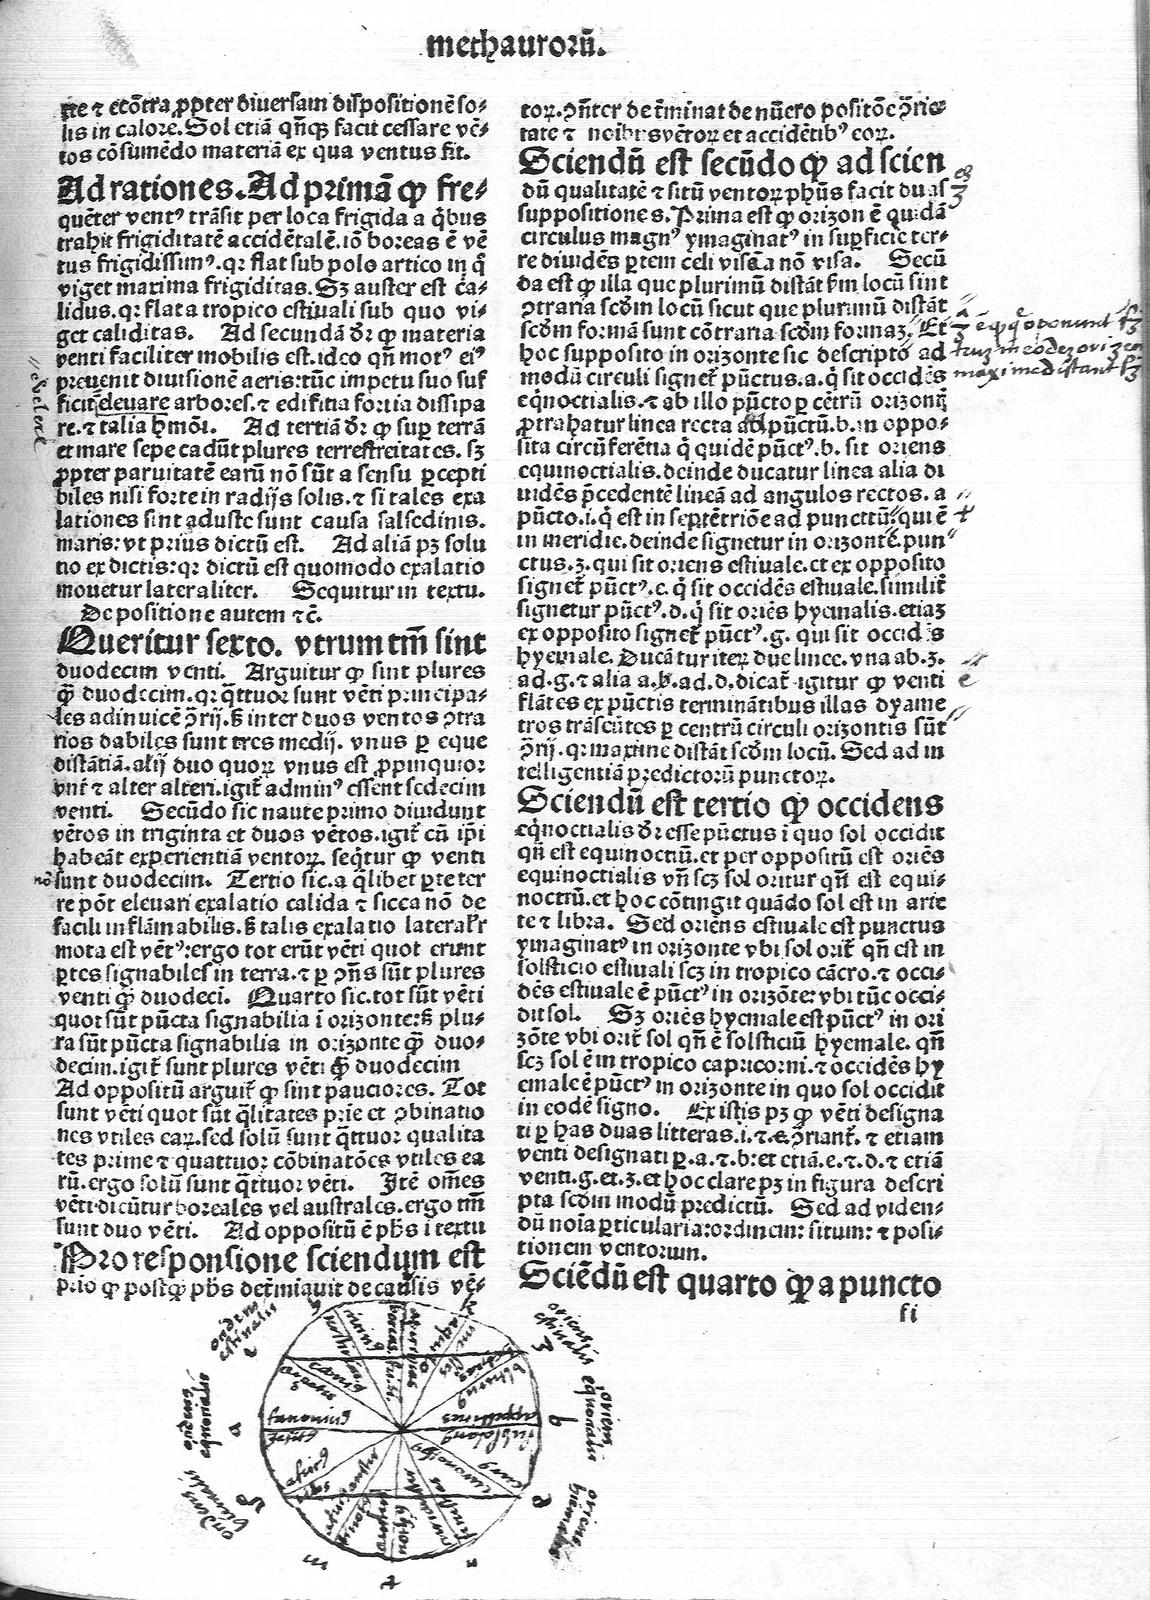 methaurorũ.
tie ⁊ ecõtra ꝓpter diuersam dispositionẽ so⸗
lis in calore. Sol etiã qñqꝫ facit cessare vẽ⸗
tos cõsumẽdo materiã ex qua ventus fit.
Ad rationes. Ad primã ꝙ fre⸗
quẽter ventꝰ trãsit per loca frigida a q̃bus
trahit frigiditatẽ accidẽtalẽ. iõ boreas ẽ vẽ
tus frigidissimꝰ. qꝛ flat sub polo artico in q̃
viget maxima frigiditas. Sꝫ auster est ca⸗
lidus. qꝛ flat a tropico estiuali sub quo vi⸗
get caliditas. Ad secundã dꝛ̃ ꝙ materia
venti faciliter mobilis est. ideo qñ motꝰ eiꝰ
preuenit diuisionẽ aeris: tũc impetu suo suf
ficit eleuare arbores. ⁊ edifitia fortia dissipa
re. ⁊ talia hm̃õi. Ad tertiã dꝛ̃ ꝙ suꝑ terrã
et mare sepe cadũt plures terrestreitates. sꝫ
ꝓpter paruitatẽ earũ nõ sũt a sensu ꝑcepti
biles nisi forte in radijs solis. ⁊ si tales exa
lationes sint aduste sunt causa salsedinis.
maris: vt prius dictũ est. Ad aliã pꝫ solu
tio ex dictis: qꝛ dictũ est quomodo exalatio
mouetur lateraliter. Sequitur in textu.
De positione autem ⁊c̃.
Queritur sexto. vtrum tm̃ sint
duodecim venti. Arguitur ꝙ sint plures
ꝙ̃ duodecim. qꝛ q̃ttuor sunt vẽti principa⸗
les adinuicẽ ꝯ̃rij. sꝫ inter duos ventos ꝯtra
rios dabiles sunt tres medij. vnus ꝑ eque
distãtiã. alij duo quoꝝ vnus est ꝓpinquior
vni ⁊ alter alteri. igit̃ adminꝰ essent sedecim
venti. Secũdo sic naute primo diuidunt
vẽtos in triginta et duos vẽtos. igit̃ cũ ip̃i
habeãt experientiã ventoꝝ. seq̃tur ꝙ venti
nõ sunt duodecim. Tertio sic. a q̃libet ꝑte ter
re põt eleuari exalatio calida ⁊ sicca nõ de
facili inflãmabilis. sꝫ talis exalatio lateral̃r
mota est vẽtꝰ: ergo tot erũt vẽti quot erunt
ꝑtes signabiles in terra. ⁊ ꝑ ꝯñs sũt plures
venti ꝙ̃ duodeci. Quarto sic. tot sũt vẽti
quot sũt pũcta signabilia i orizonte: sꝫ plu⸗
ra sũt pũcta signabilia in orizonte ꝙ̃ duo⸗
decim. igit̃ sunt plures vẽti ꝙ̃ duodecim
Ad oppositũ arguit̃ ꝙ sint pauciores. Tot
sunt vẽti quot sũt q̃litates prie et ꝯbinatio
nes vtiles eaꝝ. sed solũ sunt q̃ttuor qualita
tes prime ⁊ quattuor cõbinatões vtiles ea
rũ. ergo solũ sunt q̃ttuor vẽti. Itẽ om̃es
vẽti dicũtur boreales vel australes. ergo tm̃
sunt duo vẽti. Ad oppositũ ẽ ph̃s i textu
Pro responsione sciendum est
prio ꝙ postꝙ̃ ph̃s det̃miauit de causis vẽ⸗
toꝝ. ꝯñter det̃minat de nũero positõe ꝯ̃rie⸗
tate ⁊ noibꝰ vẽtoꝝ et accidẽtibꝰ eoꝝ.
Sciendũ est secũdo ꝙ ad scien
dũ qualitatẽ ⁊ sitũ ventoꝝ ph̃us facit duas
suppositiones. Prima est ꝙ orizon ẽ quidã
circulus magnꝰ ymaginatꝰ in suꝑficie ter⸗
re diuidẽs ꝑtem celi visã a nõ visa. Secũ
da est ꝙ illa que plurimũ distãt ẜm locũ sint
ꝯtraria scd̃m locũ sicut que plurimũ distãt
scd̃m formã sunt cõtraria scd̃m formaꝫ. Et
hoc supposito in orizonte sic descripto ad
modũ circuli signet̃ pũctus. a. q̃ sit occidẽs
eq̃noctialis. ⁊ ab illo pũcto ꝑ cẽtrũ orizontis
ꝓtrahatur linea recta ad pũctũ. b. in oppo⸗
sita circũferẽtia q̃ quidẽ pũctꝰ. b. sit oriens
equinoctialis. deinde ducatur linea alia di
uidẽs p̃cedentẽ lineã ad angulos rectos. a
pũcto. i. q̃ est in septẽtriõe ad punctũ: qui ẽ
in meridie. deinde signetur in orizonte. pun
ctus. ꝫ. qui sit oriens estiuale. et ex opposito
signet̃ pũctꝰ. e. q̃ sit occidẽs estiuale. similit̃
signetur pũctꝰ. d. q̃ sit oriẽs hyemalis. etiaꝫ
ex opposito signet̃ pũctꝰ. g. qui sit occidẽs
hyemale. Ducãtur iteꝝ due linee. vna ab. ꝫ.
ad. g. ⁊ alia a. h. ad. d. dicat̃ igitur ꝙ venti
flãtes ex pũctis terminãtibus illas dyame
tros trãseũtes ꝑ centrũ circuli orizontis sũt
ꝯ̃rij. qꝛ maxime distãt scd̃m locũ. Sed ad in
telligentiã predictorũ punctoꝝ.
Sciendũ est tertio ꝙ occidens
eq̃noctialis dꝛ̃ esse pũctus i quo sol occidit
qñ est equinoctiũ. et per oppositũ est oriẽs
equinoctialis vñ scꝫ sol oritur qñ est equi⸗
noctiũ. et hoc cõtingit quãdo sol est in arie
te ⁊ libra. Sed oriẽns estiuale est punctus
ymaginatꝰ in orizonte vbi sol orit̃ qñ est in
solsticio estiuali scꝫ in tropico cãcro. ⁊ occi⸗
dẽs estiuale ẽ pũctꝰ in orizõte: vbi tũc occi⸗
dit sol. Sꝫ oriẽs hyemale est pũctꝰ in ori
zõte vbi orit̃ sol qñ ẽ solsticiũ hyemale. qñ
scꝫ sol ẽ in tropico capricorni. ⁊ occidẽs hy
emale ẽ pũctꝰ in orizonte in quo sol occidit
in eodẽ signo. Ex istis pꝫ ꝙ vẽti designa
ti ꝑ has duas litteras. i. ⁊. ꝯ̃riant̃. ⁊ etiam
venti designati ꝑ. a. ⁊. b: et etiã. e. ⁊. d. ⁊ etiã
venti. g. et. ꝫ. et hoc clare pꝫ in figura descri
pta scd̃m modũ predictũ. Sed ad viden⸗
dũ noĩa ꝑticularia: ordinem: situm: ⁊ posi⸗
tionem ventorum.
Sciẽdũ est quarto ꝙ a puncto
fi
oriens estiualis
b
d
oriens
a
e
fauonius